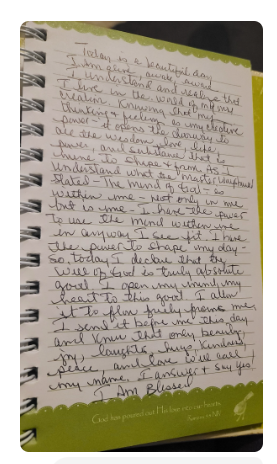 Today is a beautiful day
I am alive, awake, aware
I understand and realize that
I live in the world of my own
creation. Knowing that my
thinking & feeling is my creative
power - it opens the doorway to
all the wisdom, love, life,
power, and substance that is
mine to shape & form. As I
understand what the master
stated - The mind of God - is
within me - not only in me
but is me. I have the power
to use the mind within me
in anyway I see fit. I have
the power to shape my day -
so, today I declare that the
will of God is truly absolute
good. I open my mind, my
heart to this good. I allow
it to flow freely from me,
I send it before me this day
and know that only beauty,
joy, laughter, hugs, kindness,
peace, and love will call
my name. I answer & say yes!
I Am Blessed
God has poured out His love into our hearts.
Romans 5:5